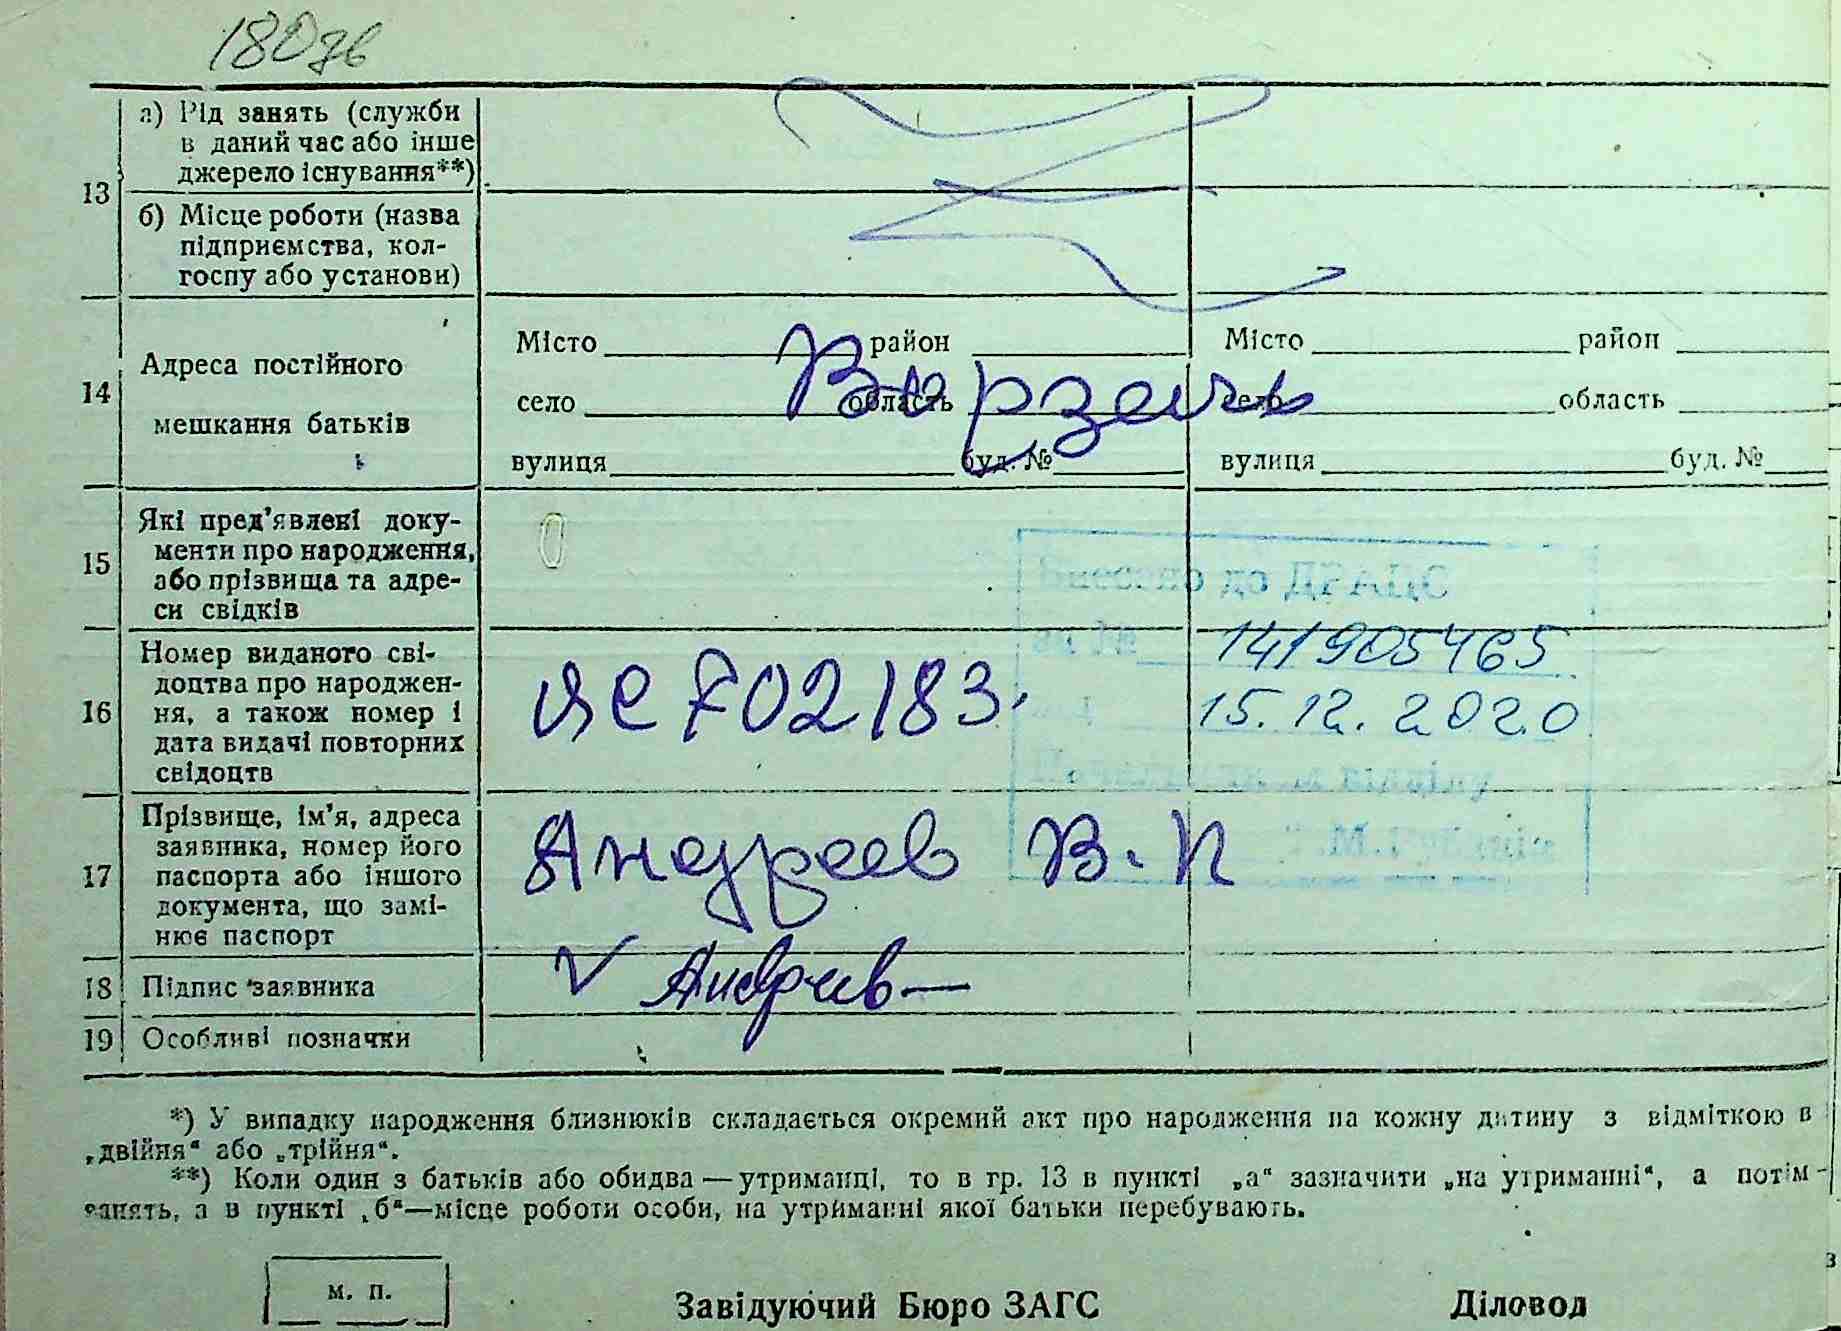 180 зв
13
а) Рід занять (служби
в даний час або інше
джерело існування**)
б) Місце роботи (назва
підприємства, кол-
госпу або установи)
14
Адреса постійного
мешкання батьків
Місто район Місто район
село область село область
вулиця буд. № вулиця буд. №
15
Які пред’явлені доку-
менти про народження,
або прізвища та адре-
си свідків
Внесено до ДРАЦС
за № 141905465
15.12.2020
16
Номер виданого сві-
доцтва про народжен-
ня, а також номер і
дата видачі повторних
свідоцтв
ЯС 702183.
відділу
17
Прізвище, ім’я, адреса
заявника, номер його
паспорта або іншого
документа, що замі-
нює паспорт
Андреев В. П
18 Підпис заявника
V Андреев
19 Особливі позначки
*) У випадку народження близнюків складається окремий акт про народження на кожну дитину з відміткою в
„двійня“ або „трійня“.
**) Коли один з батьків або обидва — утриманці, то в гр. 13 в пункті „а“ зазначити „на утриманні“, а потім
занять, а в пункті „б“—місце роботи особи, на утриманні якої батьки перебувають.
м. п.
Завідуючий Бюро ЗАГС Діловод